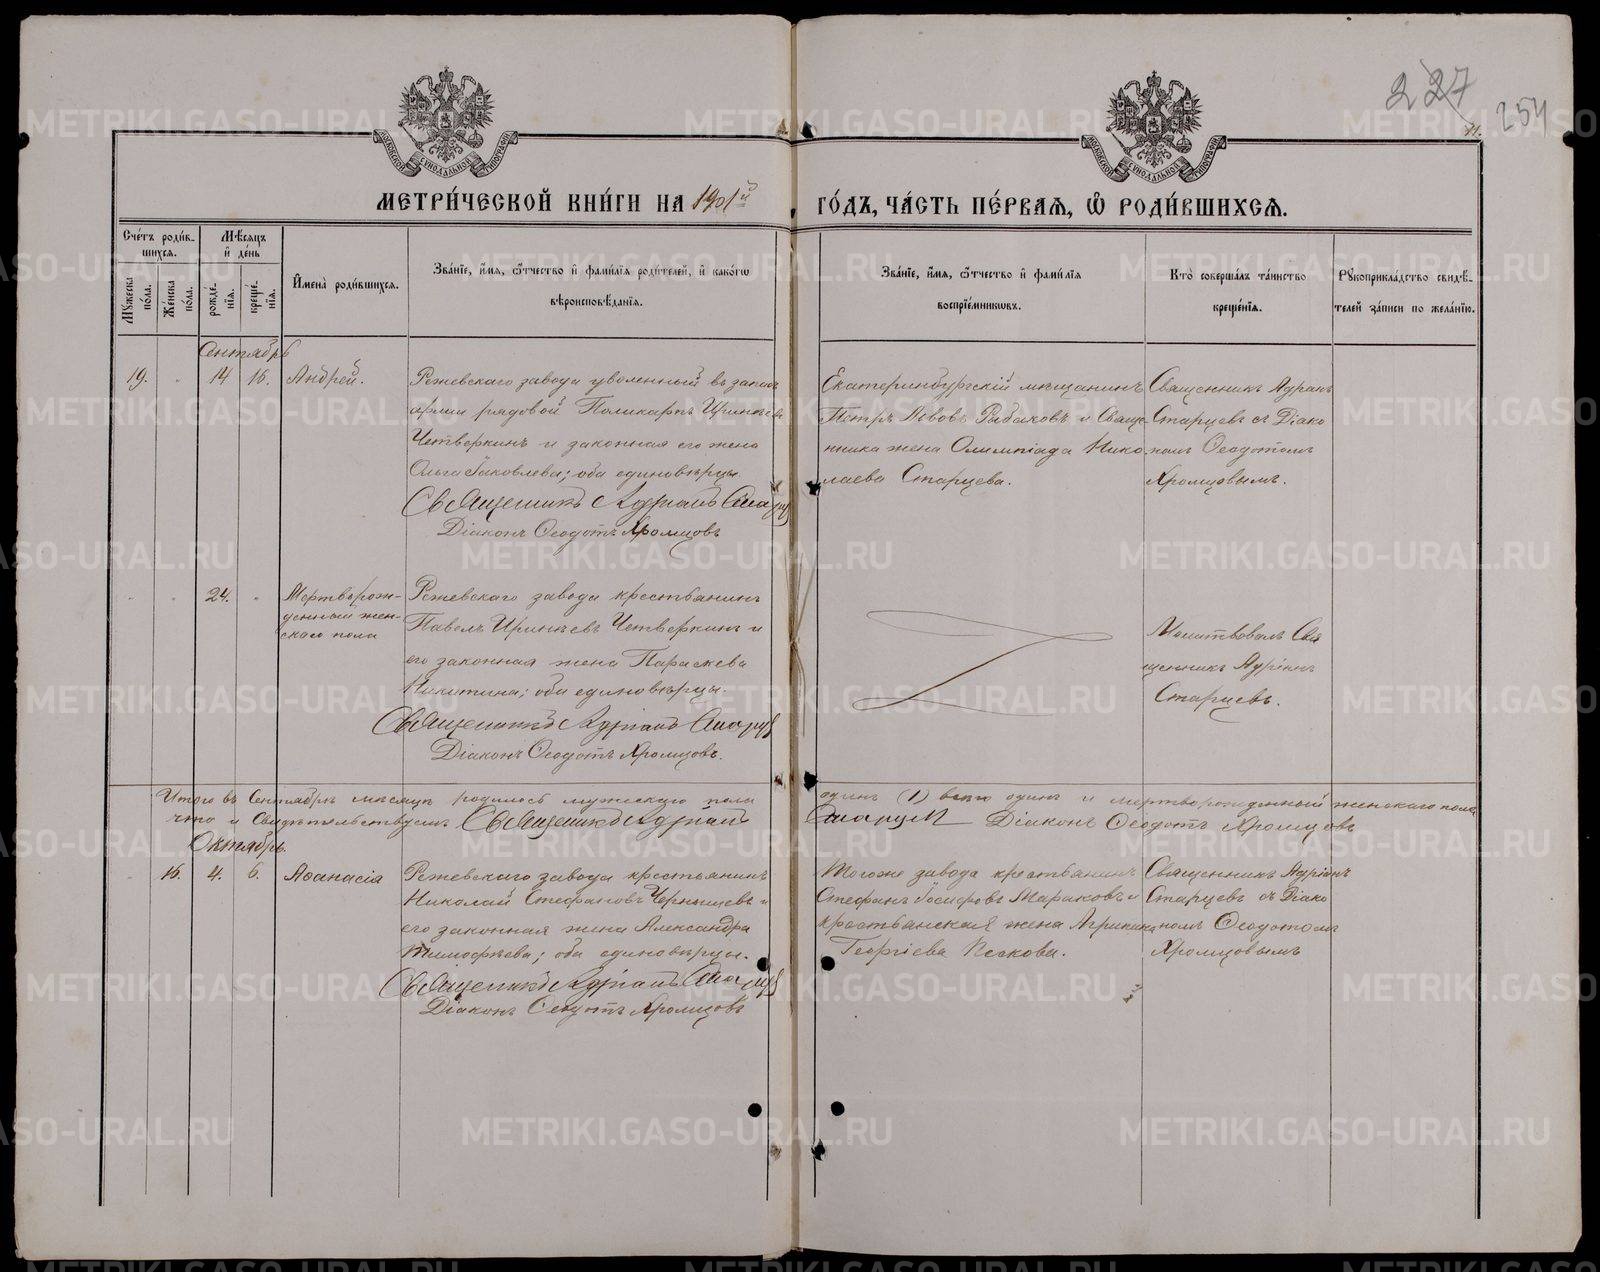 227
254
11.
МЕТРИ́ЧЕСКОЙ КНИ́ГИ НА 1901й ГО́ДЪ, ЧА́СТЬ ПЕ́РВАЯ, Ѡ РОДИ́ВШИХСЯ.
Сче́тъ роди́вшихся.
Мѣ́сяцъ и҆ де́нь
Мꙋ́жеска по́ла.
Же́нска по́ла.
рожде́нїѧ.
креще́нїѧ.
И҆мена̀ роди́вшихсѧ.
Зва́нїе, и҆́мѧ, ѻ҆́тчество и҆ фами́лїѧ роди́телей, и҆ како́гѡ
вѣроисповѣ́данїѧ.
Зва́нїе, и҆́мѧ, ѻ҆́тчество и҆ фами́лїѧ
воспрїе́мникѡвъ.
Кто̀ соверша́лъ та́инство
креще́нїѧ.
Рꙋкоприкла́дство свидѣ́-
телей за́писи по жела́нїю.
Сентябрь
19.
14
16.
Андрей.
Режевскаго завода уволенный въ запасъ
арміи рядовой Поликарпъ Иринѣевъ
Четверкинъ и законная его жена
Ольга Іаковлева; оба единовѣрцы
Священникъ Адріанъ Старцевъ
Діаконъ Ѳеодотъ Хромцовъ
Екатеринбургскій мѣщанинъ
Петръ Львовъ Рыбаковъ и Свяще-
нника жена Олимпіада Нико-
лаева Старцева.
Священникъ Адріанъ
Старцевъ съ Діако
номъ Ѳеодотомъ
Хромцовымъ.
24.
Мертворож-
денный жен-
скаго пола
Режевскаго завода крестьянинъ
Павелъ Иринѣевъ Четверкинъ и
его законная жена Параскева
Никитина; оба единовѣрцы.
Священникъ Адріанъ Старцевъ
Діаконъ Ѳеодотъ Хромцовъ.
Молитвовалъ Свя
щенникъ Адріанъ
Старцевъ.
Итого въ Сентябрѣ мѣсяцѣ родилось мужескаго пола один (1) всего один и мертворожденный женскаго пола
что и Свидѣтельствуемъ Священникъ Адріанъ Старцевъ Діаконъ Ѳеодотъ Хромцовъ
Октябрь.
16.
4.
6.
Аѳанасія
Режевскаго завода крестьянинъ
Николай Стефановъ Чернышевъ и
его законная жена Александра
Тимофѣева; оба единовѣрцы.
Священникъ Адріанъ Старцевъ
Діаконъ Ѳеодотъ Хромцовъ
Тогоже завода крестьянинъ
Стефанъ Іосифовъ Мараковъ и
крестьянская жена Агрипина
Георгіева Пескова.
Священникъ Адріанъ
Старцевъ съ Діако
номъ Ѳеодотомъ
Хромцовымъ
METRIKI.GASO-URAL.RU